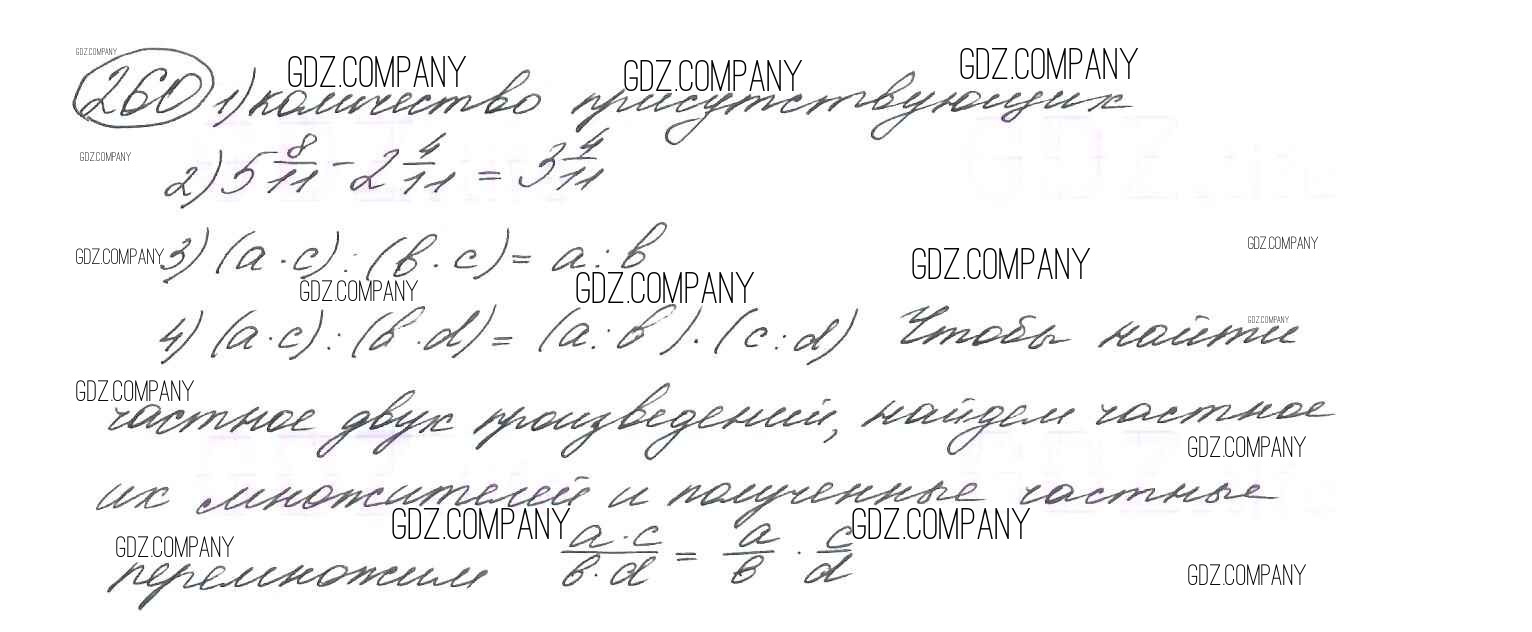 GDZ.COMPANY
GDZ.COMPANY GDZ.COMPANY GDZ.COMPANY
260 1) количество присутствующих
GDZ.COMPANY
2) 5 8/11 - 2 4/11 = 3 4/11
GDZ.COMPANY GDZ.COMPANY
3) (a · c) : (в · c) = a : в
GDZ.COMPANY GDZ.COMPANY GDZ.COMPANY
GDZ.COMPANY
4) (a · c) : (в · d) = (a : в) · (c : d) Чтобы найти
GDZ.COMPANY
частное двух произведений, найдем частное
GDZ.COMPANY
их множителей и полученные частные
GDZ.COMPANY GDZ.COMPANY
GDZ.COMPANY GDZ.COMPANY
перемножим a · c / в · d = a/в · c/d